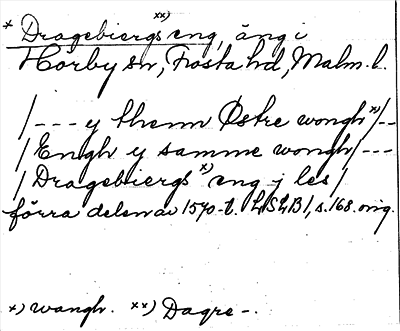 * Dragebiergs xx) eng, äng i
Hörby sn, Frosta hd, Malm. l.
/--- y themn Østre wongh x) /--
/ Engh y samme wongh /---
/ Dragebiergs x) eng j les /
förra delen av 1570-t. LSLB 1, s. 168. orig.
x) wangh. xx) Dagre-.